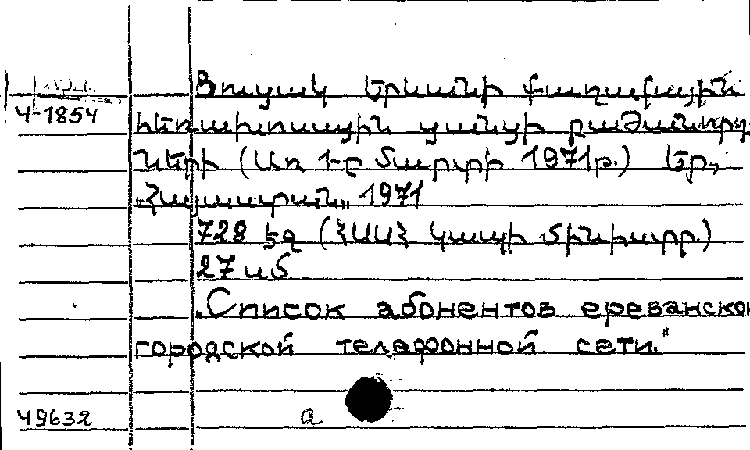 Ցուցակ Երևանի քաղաքային
Ч-1854
հեռախոսային ցանցի բաժանորդ
ների (Առ 1-ը մարտի 1971թ.) Եր.,
„Հայաստան„ 1971
728 էջ (ՀՍՍՀ Կապի մինիստր.)
27 սմ
„Список абонентов ереванской
городской телефонной сети."
49632 a